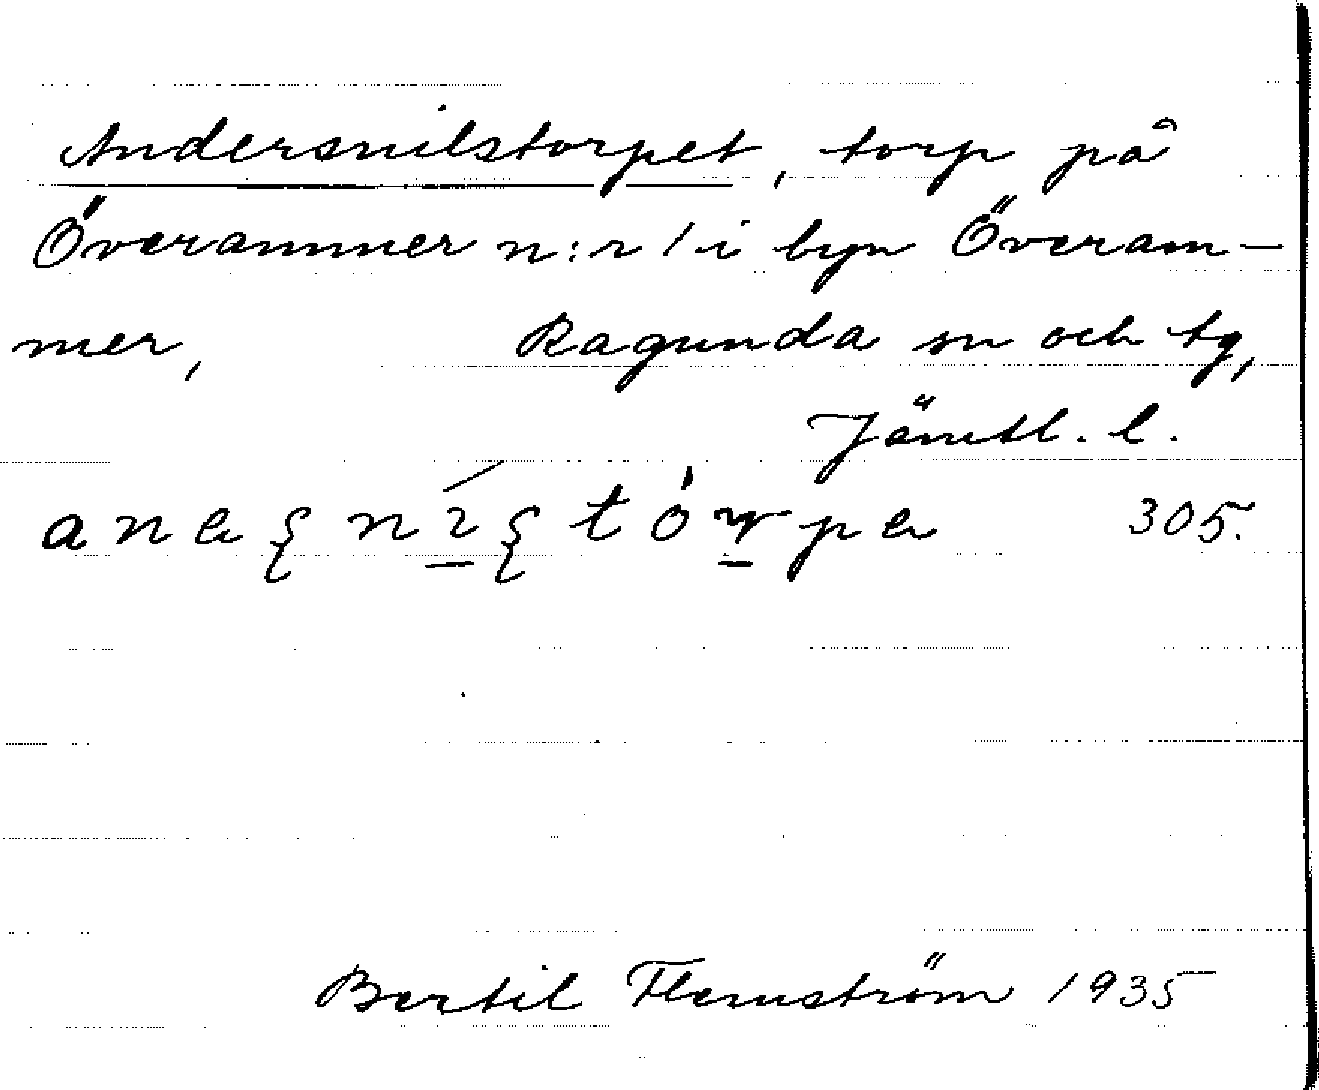 Andersnilstorpet, torp på
Överammer n:r 1 i byn Överam-
mer, Ragunda sn och tg,
Jämtl. l.
305.
Bertil Flemström 1935